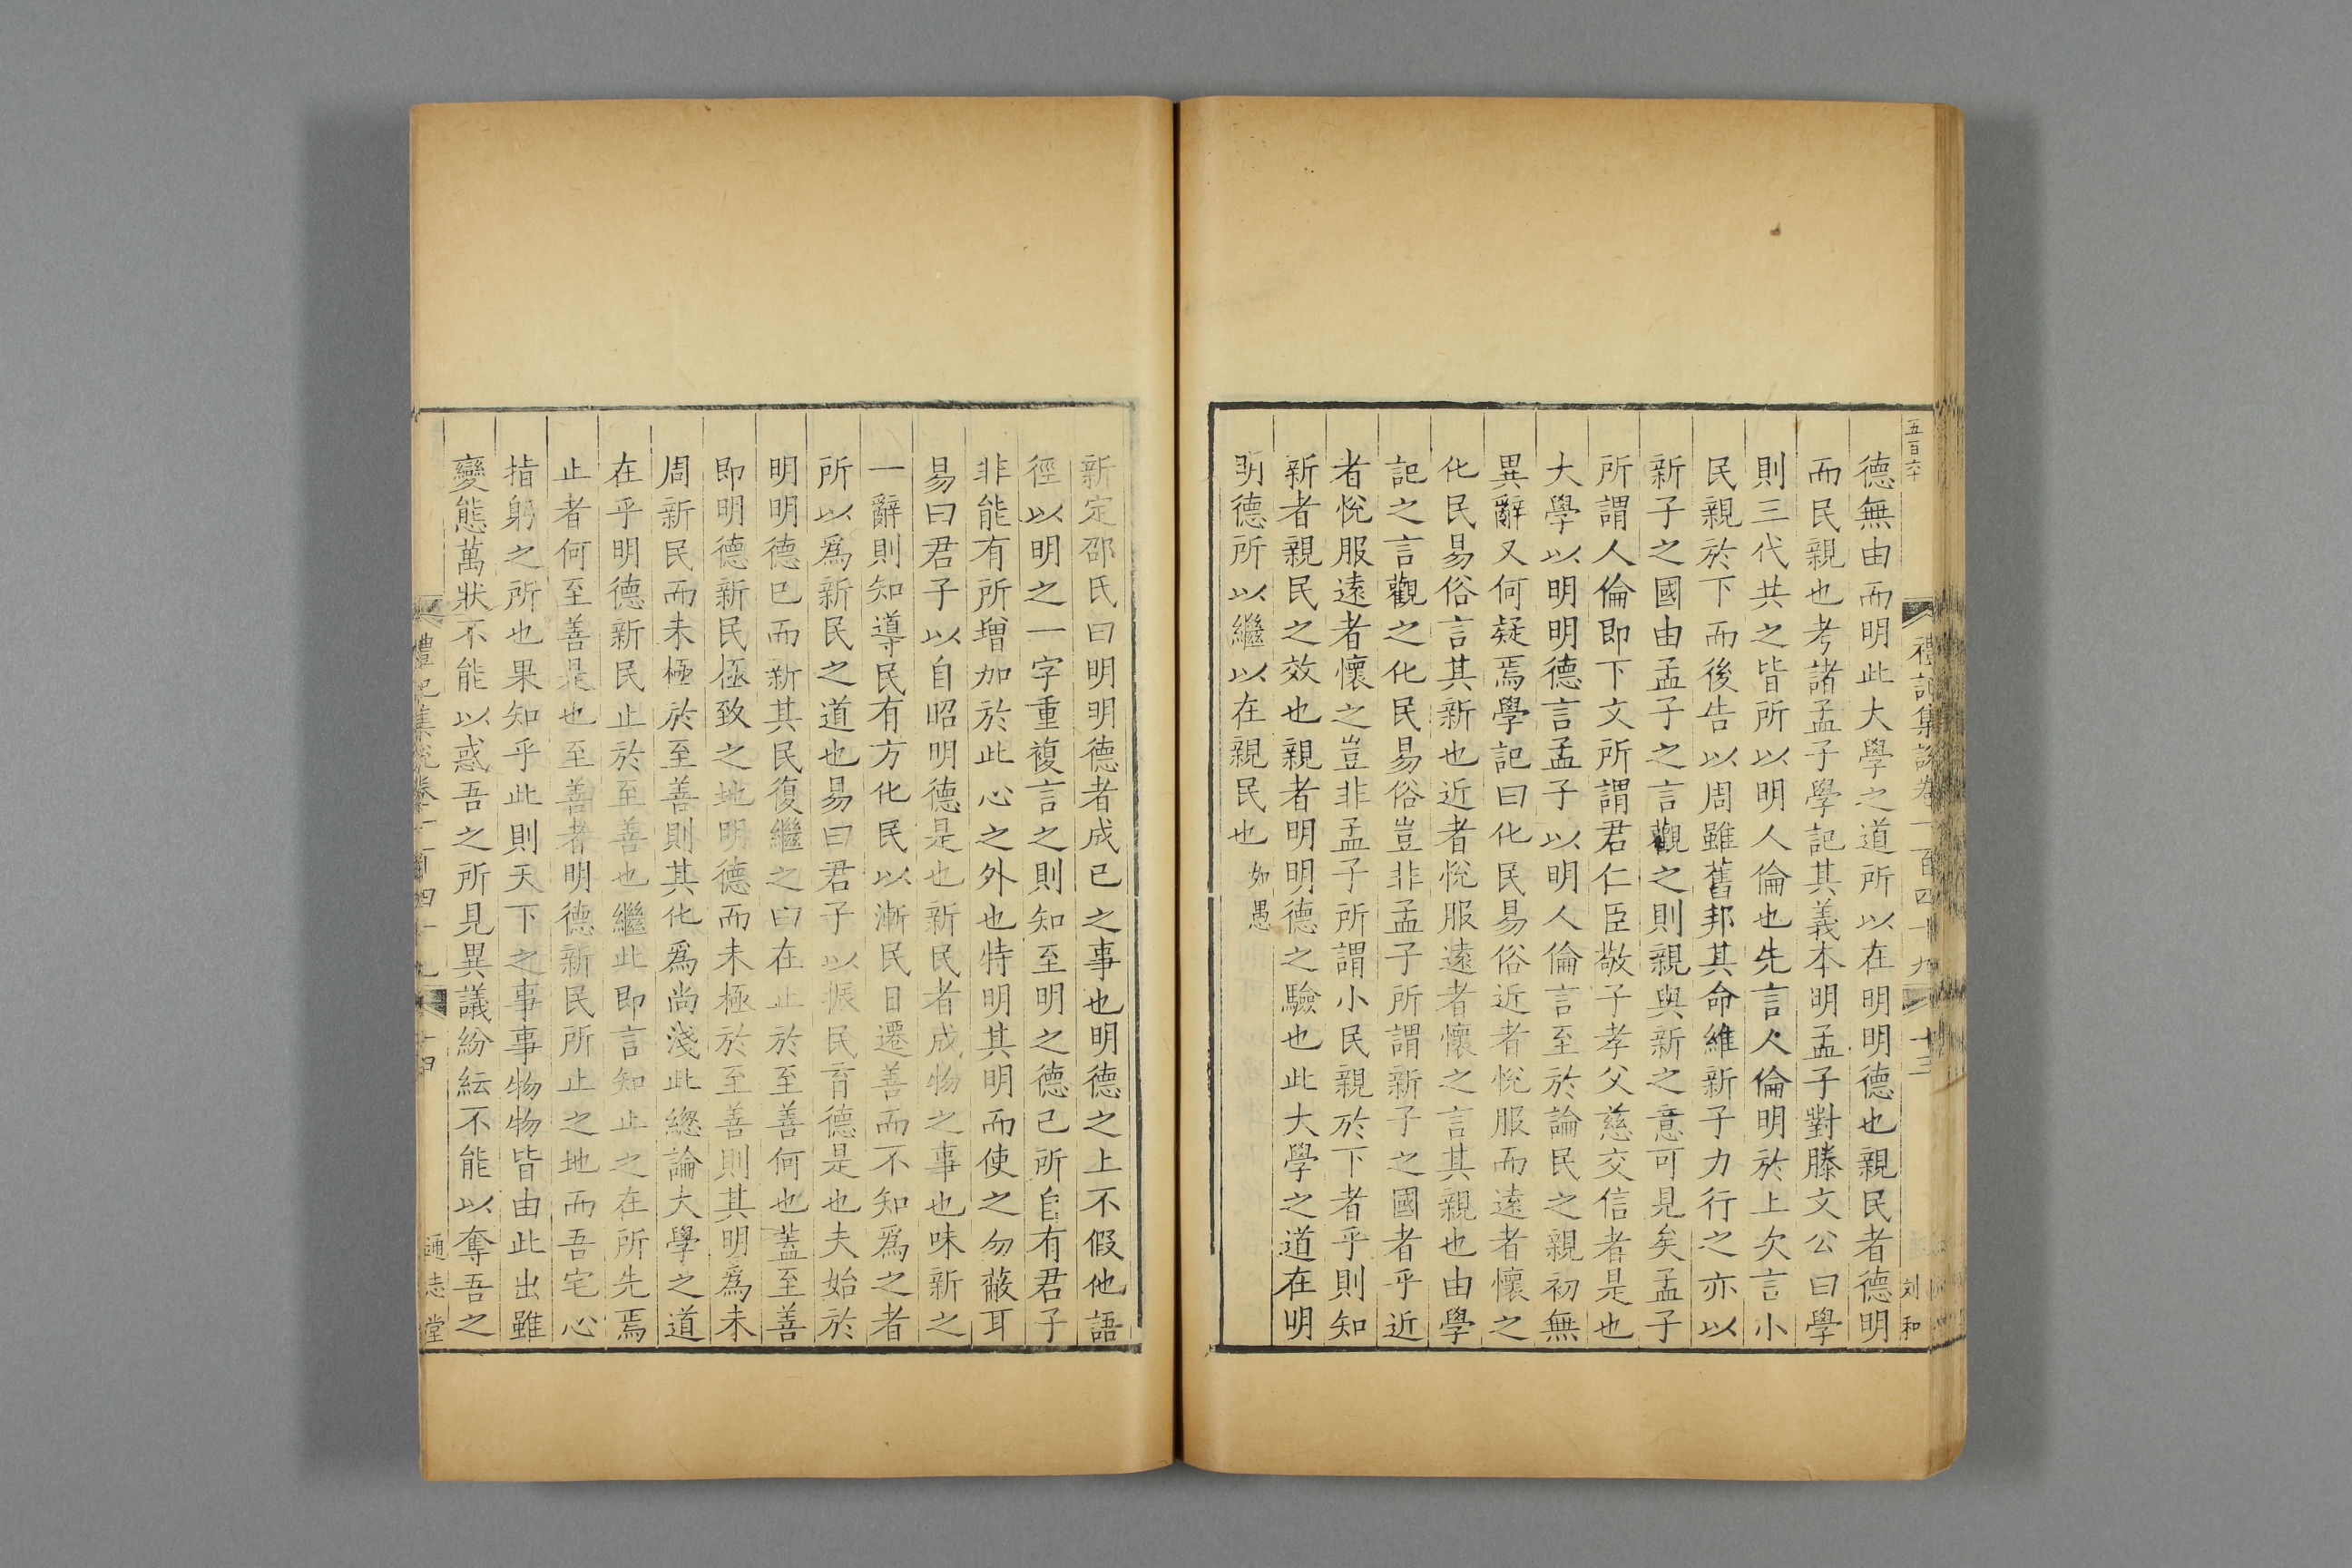 五百六十
禮記集說卷一百四十九
十三
刘和
德無由而明此大學之道所以在明明德也親民者德明
而民親也考諸孟子學記其義本明孟子對滕文公曰學
則三代共之皆所以明人倫也先言人倫明於上次言小
民親於下而後告以周雖舊邦其命維新子力行之亦以
新子之國由孟子之言觀之則親與新之意可見矣孟子
所謂人倫即下文所謂君仁臣敬子孝父慈交信者是也
大學以明明德言孟子以明人倫言至於論民之親初無
異辭又何疑焉學記曰化民易俗近者悅服而遠者懷之
化民易俗言其新也近者悅服遠者懷之言其親也由學
記之言觀之化民易俗豈非孟子所謂新子之國者乎近
者悅服遠者懷之豈非孟子所謂小民親於下者乎則知
新者親民之效也親者明明德之驗也此大學之道在明
明德所以繼以在親民也如愚
新定邵氏曰明明德者成已之事也明德之上不假他語
徑以明之一字重複言之則知至明之德己所自有君子
非能有所增加於此心之外也特明其明而使之勿蔽耳
易曰君子以自昭明德是也新民者成物之事也味新之
一辭則知導民有方化民以漸民日遷善而不知爲之者
所以爲新民之道也易曰君子以振民育德是也夫始於
明明德已而新其民復繼之曰在止於至善何也蓋至善
即明德新民極致之地明德而未極於至善則其明爲未
周新民而未極於至善則其化爲尚淺此總論大學之道
在乎明德新民止於至善也繼此即言知止之在所先焉
止者何至善是也至善者明德新民所止之地而吾宅心
指躬之所也果知乎此則天下之事事物物皆由此出雖
變態萬狀不能以惑吾之所見異議紛紜不能以奪吾之
禮記集說卷一百四十九
十四
通志堂